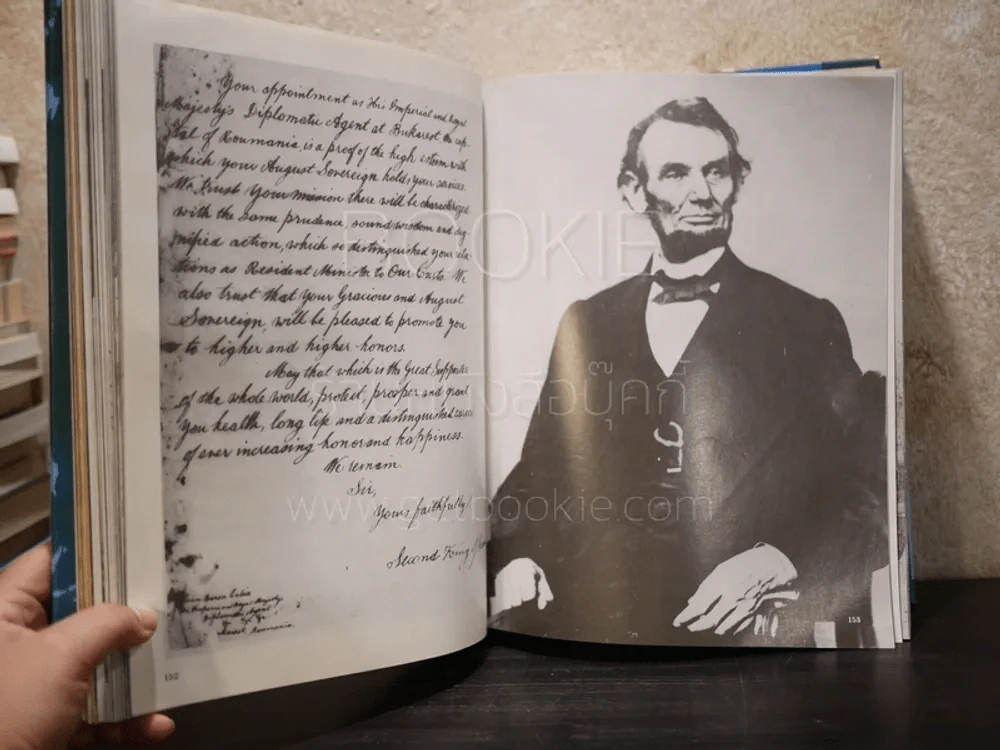 Your appointment as His Imperial and Royal
Majesty's Diplomatic Agent at Bukarest, the cap-
ital of Roumania, is a proof of the high esteem with
which your August Sovereign holds your services.
We trust your mission there will be characterized
with the same prudence, sound wisdom and dig-
nified action, which so distinguished your rela-
tions as Resident Minister to Our Courts. We
also trust that your Gracious and August
Sovereign, will be pleased to promote you
to higher and higher honors.
May that which is the Great Supporter
of the whole world, protect, prosper and grant
you health, long life and a distinguished career
of ever increasing honor and happiness.
We remain
Sir,
Yours faithfully
Second King
Baron
His Imperial and Royal Majesty's
Diplomatic Agent
Roumania
152
153
BOOKIE
www.getbookie.com